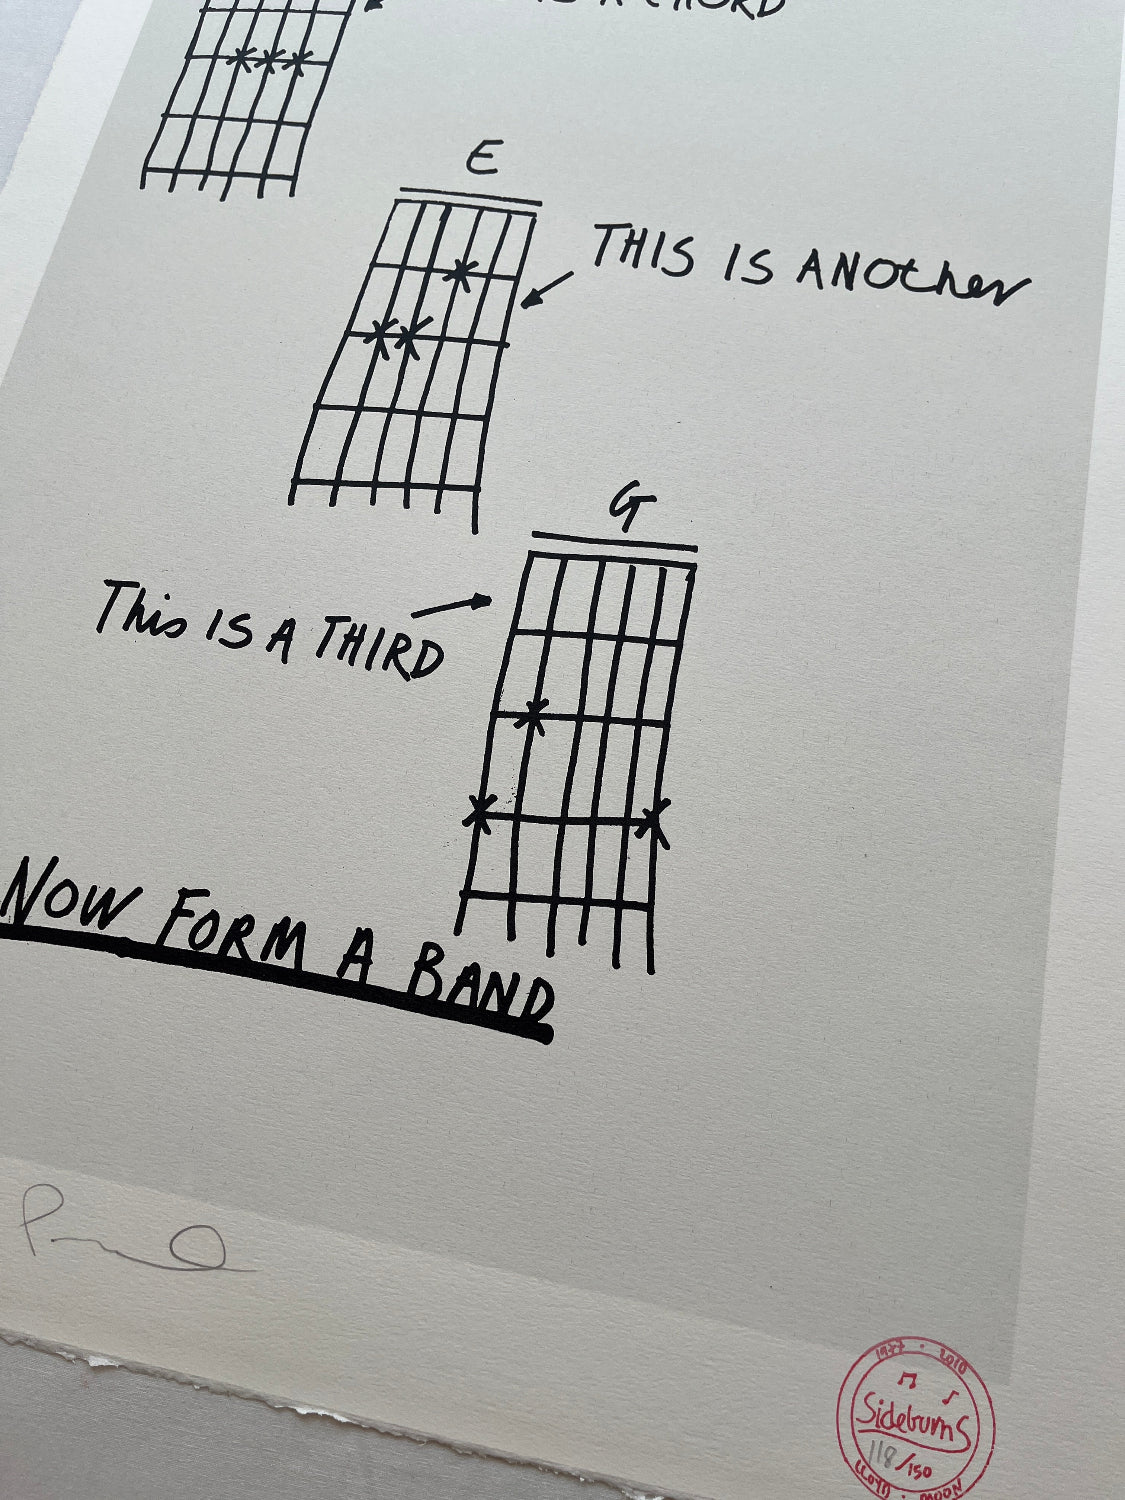 IS A CHORD
E
THIS IS ANOther
G
This IS A THIRD
NOW FORM A BAND
1977 · 2010
Sideburns
118/150
LLOYD · MOON